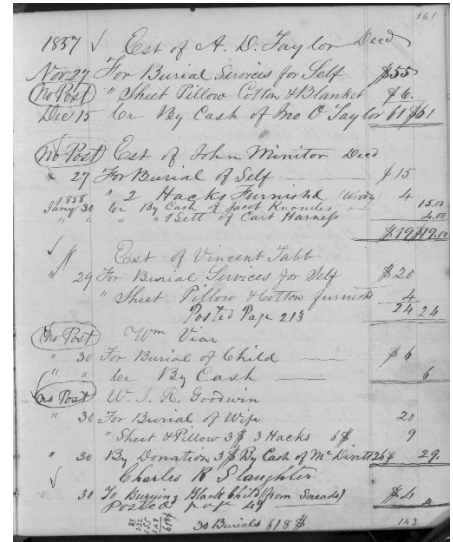 161
1857 √ Est of A. D. Taylor Decd
Nov 27 For Burial Services for Self $55
(no Post) " Sheet Pillow Cotton & Blanket $6.
Dec 15 Cr By Cash of Jno O Taylor 61 $61
(no Post) Est of John Minitor Decd
" 27 For Burial of Self $15
" 2 Hacks Furnished (Woody) 4
1858 Jany 30 Cr By Cash of Jacob Knowles 15.00
" " " " 1 Sett of Cart Harness 4.00
$19 $19.00
√ Est of Vincent Tabb
" 29 For Burial Services for Self $20
" Sheet Pillow & Cotton furnish 4
Posted Page 213 24 24
(no Post) Wm Viar
" 30 For Burial of Child $6
" " Cr By Cash 6
(no Post) W. S. R. Goodwin
" 30 For Burial of Wife 20
" Sheet & Pillow 3$ 3 Hacks 6$ 9
" 30 By Donation 3$ By Cash of Mc Divitt 26$ 29.
√ Charles R Slaughter
30 To Burying Black Child (from Sneads) $4 4
Posted page 49
30 Burials 618 $ 143